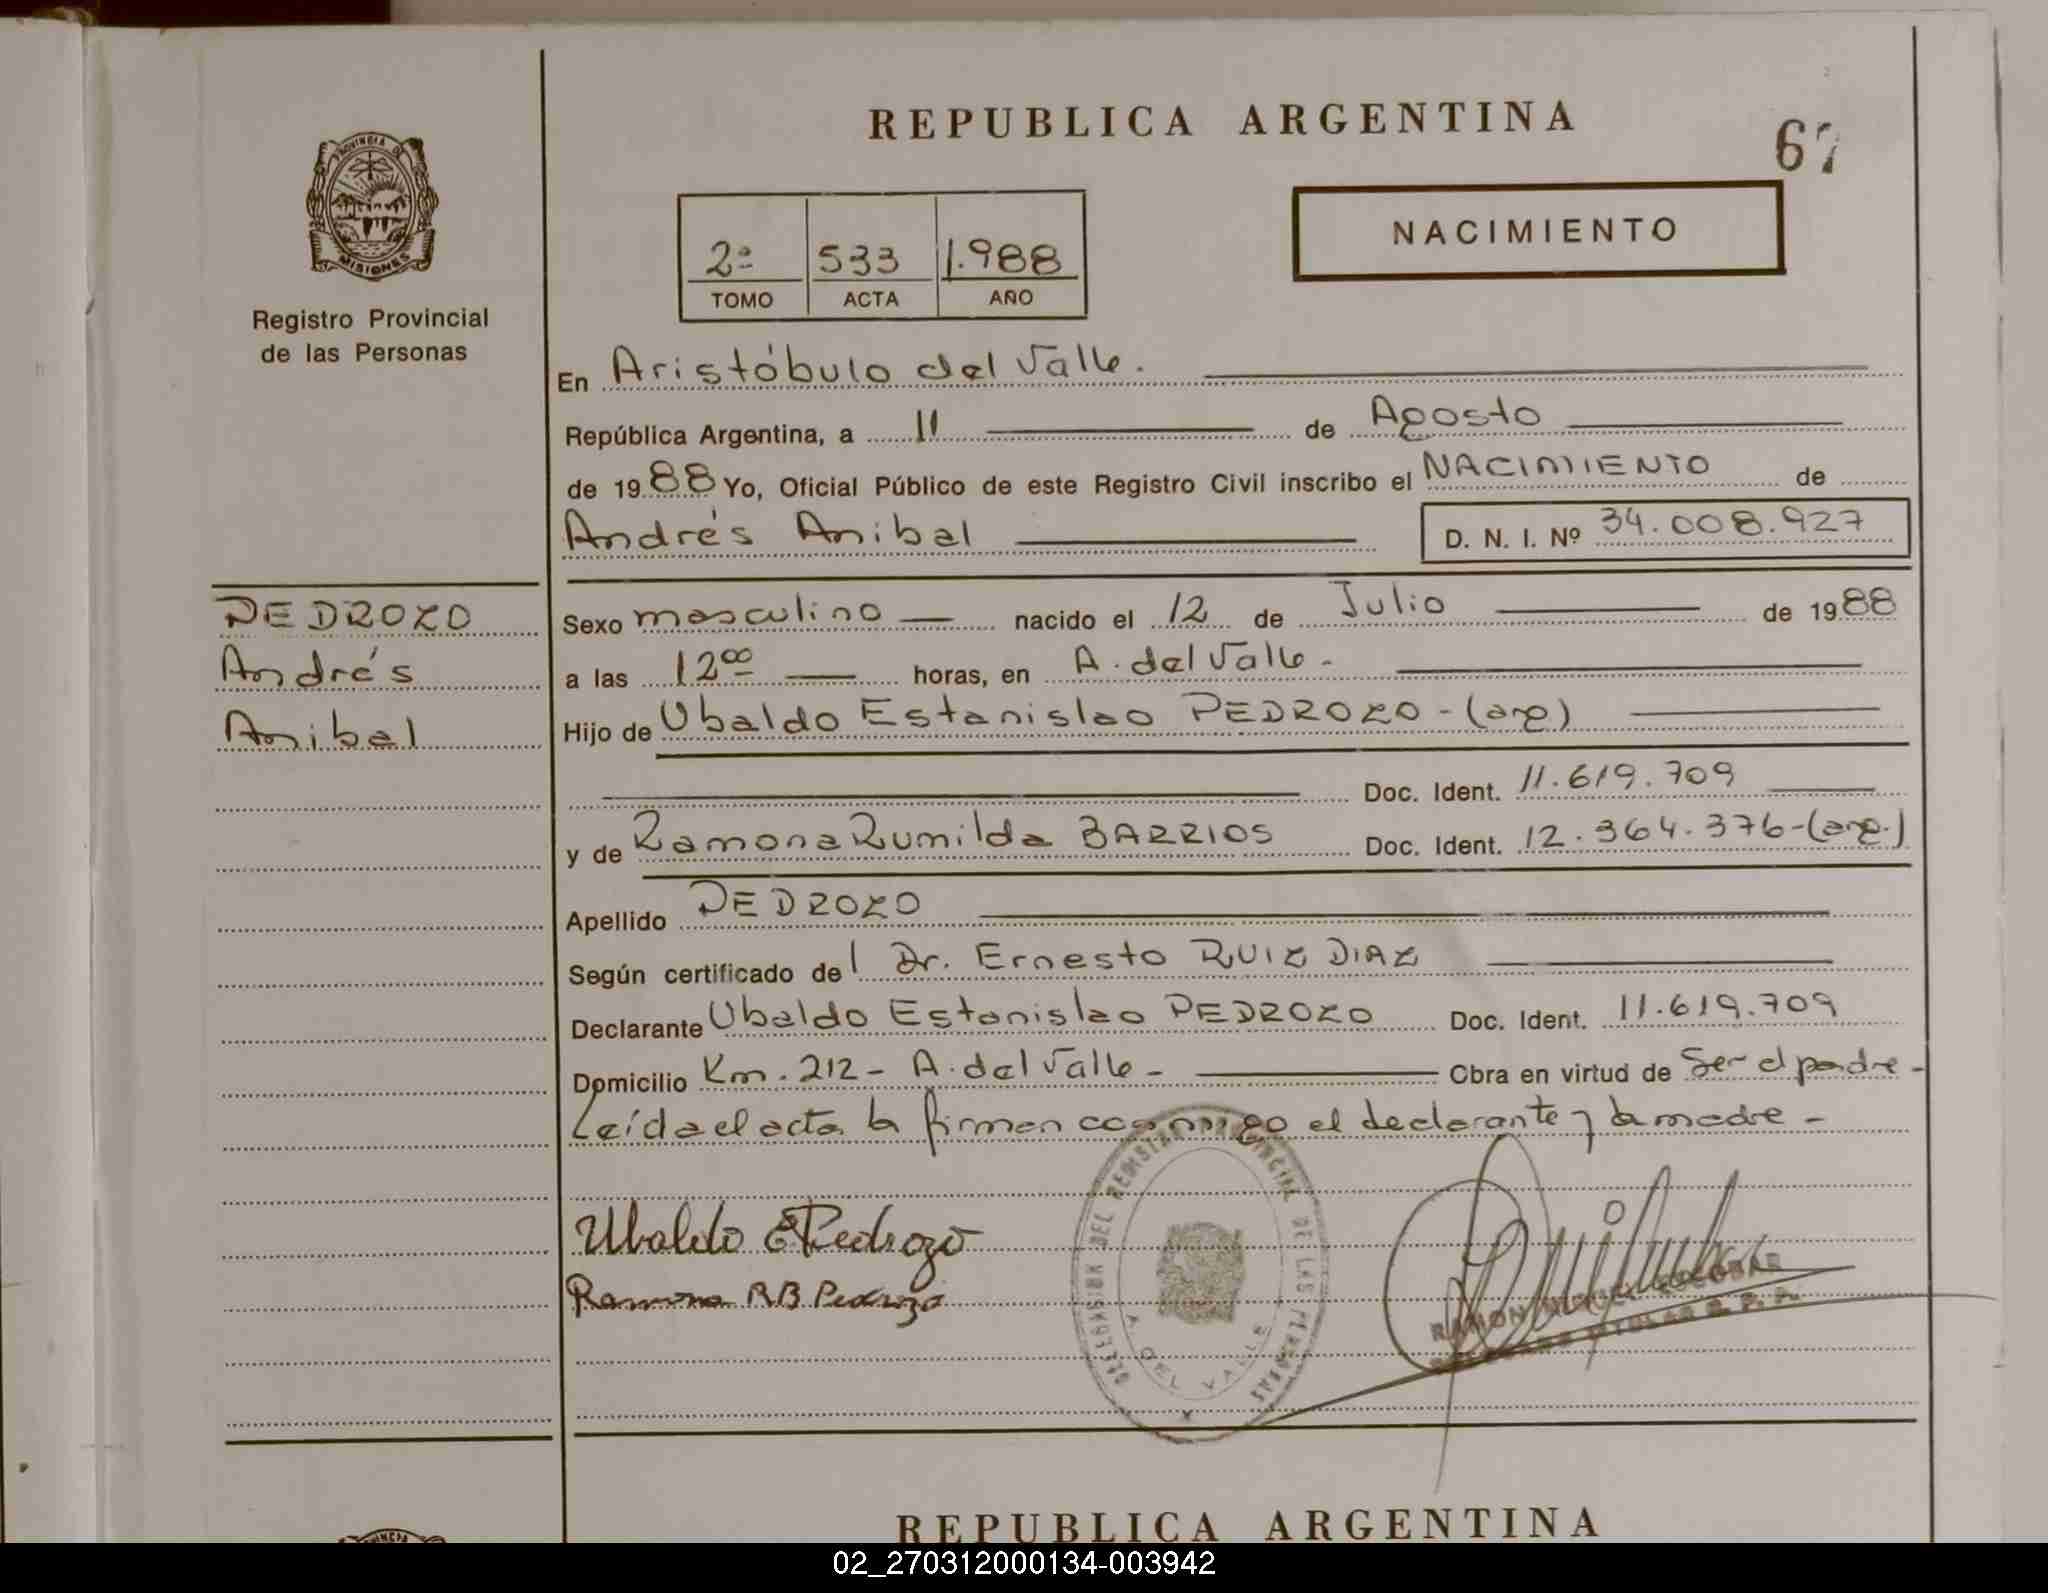 REPUBLICA ARGENTINA
67
PROVINCIA DE
MISIONES
Registro Provincial
de las Personas
2ª 533 1.988
TOMO ACTA AÑO
NACIMIENTO
En Aristóbulo del Valle.
República Argentina, a 11 de Agosto
de 1988 Yo, Oficial Público de este Registro Civil inscribo el NACIMIENTO de
Andrés Anibal D. N. I. Nº 34.008.927
PEDROZO
Andrés
Anibal
Sexo masculino nacido el 12 de Julio de 1988
a las 12 00 horas, en A. del Valle -
Hijo de Ubaldo Estanislao PEDROZO - (arg)
Doc. Ident. 11.619.709
y de Ramona Rumilda BARRIOS Doc. Ident. 12.364.376-(arg.)
Apellido PEDROZO
Según certificado del Dr. Ernesto RUIZ DIAZ
Declarante Ubaldo Estanislao PEDROZO Doc. Ident. 11.619.709
Domicilio Km. 212 - A. del Valle - Obra en virtud de Ser el padre -
Leída el acta la firman conmigo el declarante y la madre -
Ubaldo E Pedrozo
Ramona RB Pedrozo
DELEGACION DEL REGISTRO PROVINCIAL DE LAS PERSONAS
A. DEL VALLE
RAMON MIGUEL ESCOBAR
TITULAR R. P. P.
REPUBLICA ARGENTINA
02_270312000134-003942